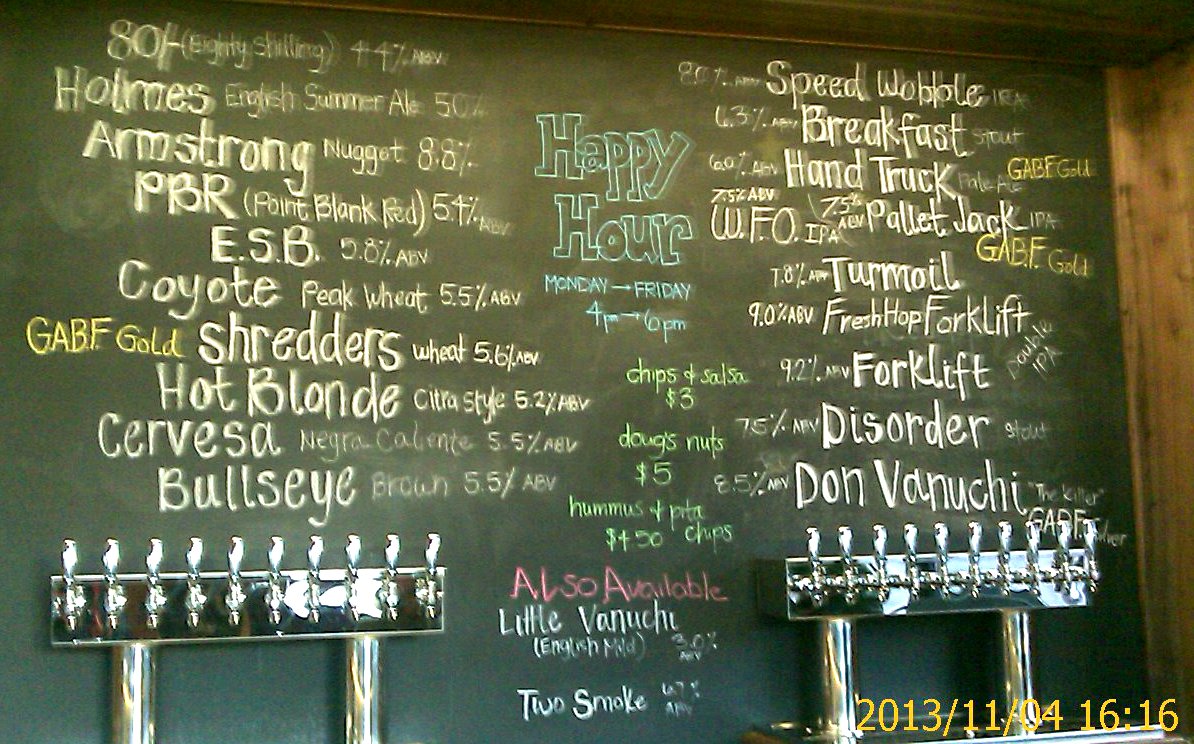 80/- (Eighty Shilling) 4.4% ABV
Holmes English Summer Ale 5.0%
Armstrong Nugget 8.8%
PBR (Point Blank Red) 5.4% ABV
E.S.B. 5.8% ABV
Coyote Peak Wheat 5.5% ABV
GABF Gold Shredders Wheat 5.6% ABV
Hot Blonde Citra Style 5.2% ABV
Cervesa Negra Caliente 5.5% ABV
Bullseye Brown 5.5% ABV
Happy
Hour
MONDAY → FRIDAY
4pm → 6pm
chips & salsa
$3
doug's nuts
$5
hummus & pita
$4.50 chips
Also Available
Little Vanuchi
(English Mild) 3.0% ABV
Two Smoke 6.7% ABV
8.0% ABV Speed Wobble IPA
6.3% ABV Breakfast Stout
6.0% ABV Hand Truck Pale Ale GABF Gold
7.5% ABV W.F.O. IPA 7.5% ABV Pallet Jack IPA
GABF Gold
7.8% ABV Turmoil
9.0% ABV Fresh Hop Forklift
9.2% ABV Forklift Double IPA
7.5% ABV Disorder Stout
8.5% ABV Don Vanuchi "The Killer"
GABF Silver
2013/11/04 16:16